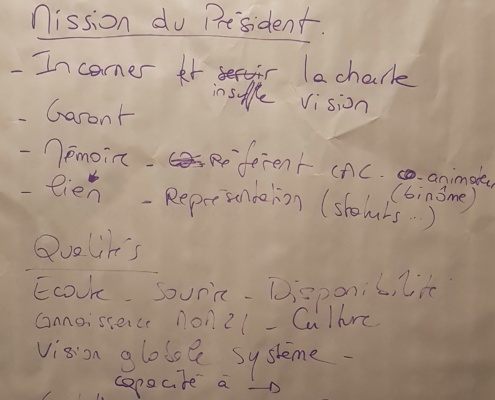 Mission du Président.
- Incarner et servir la charte
insuffle vision
- Garant
- Mémoire - Référent CAC. co-animateur
- lien - Représentation (statuts...) (binôme)
Qualités
Ecoute - Sourire - Disponibilité
Connaissance - Culture
Vision globale système -
capacité à →